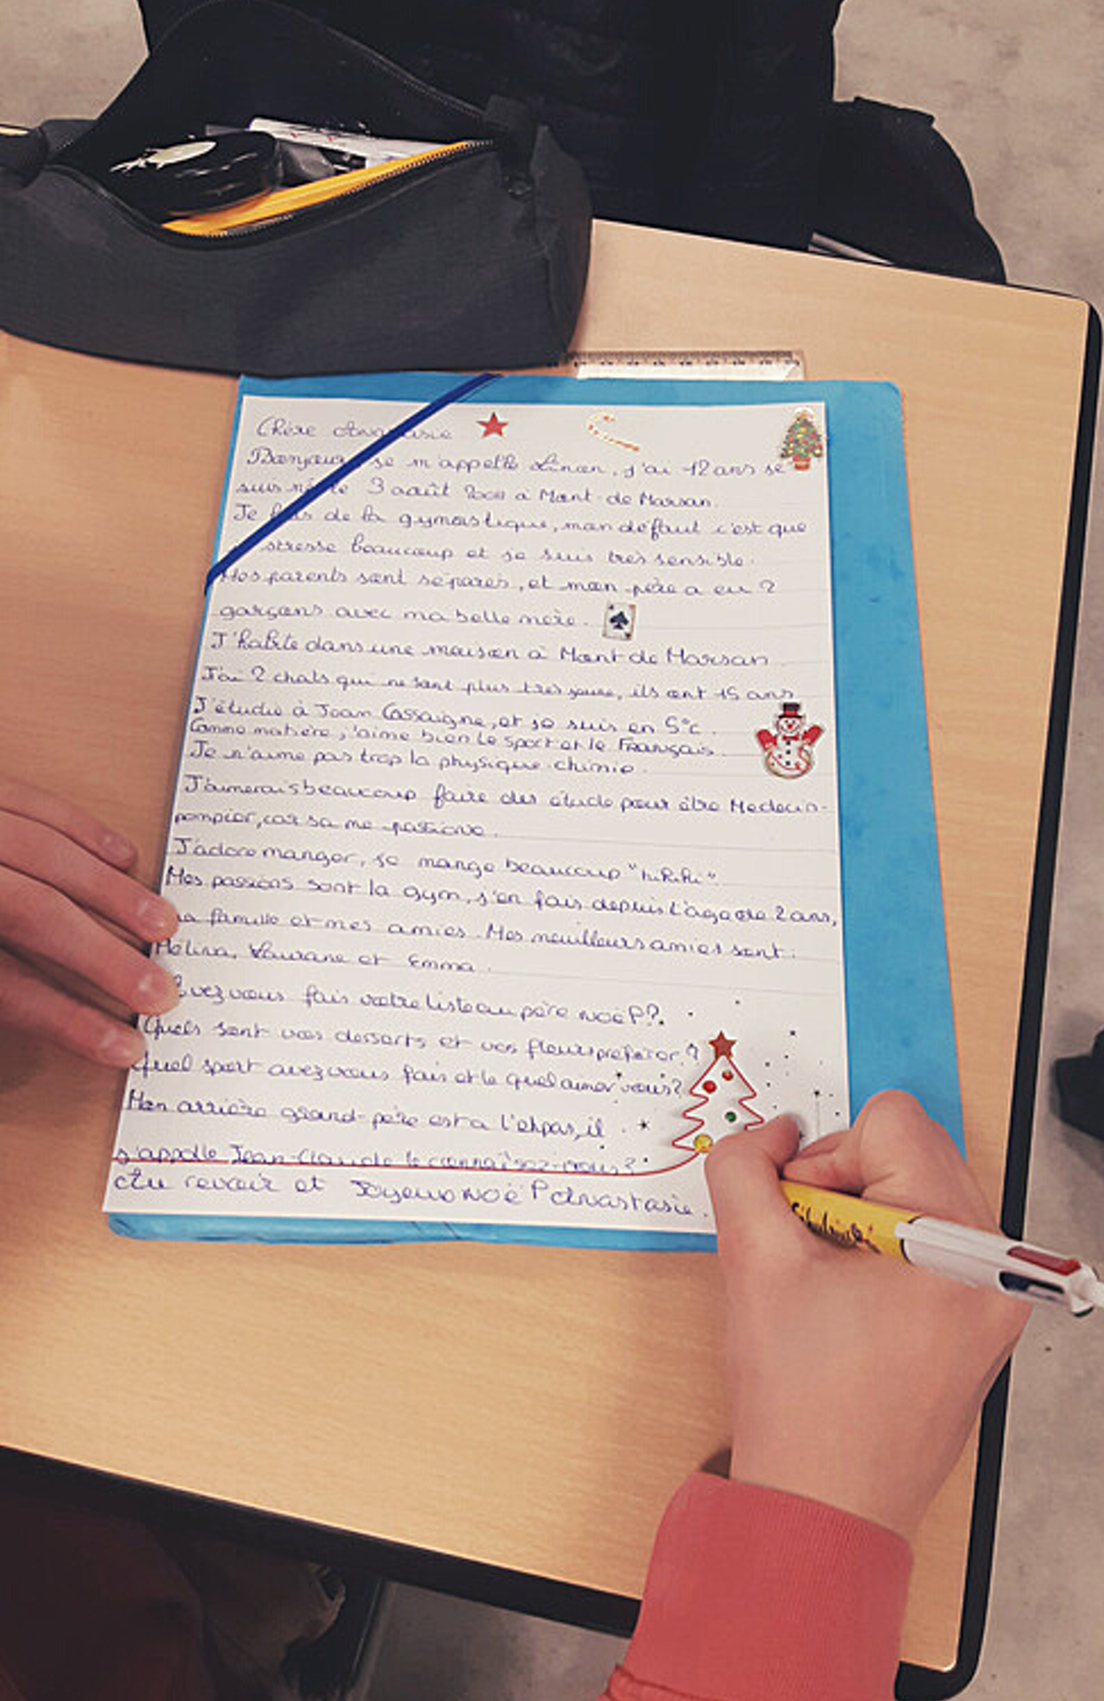 Chère Anastasie
Bonjour, je m'appelle, j'ai 12 ans je
suis né le 3 août à Mont-de Marsan.
Je fais de la gymastique, mon défaut c'est que
stresse beaucoup et je suis très sensible.
Mes parents sont séparés, et mon père a eu 2
garçons avec ma belle mère.
J'habite dans une maison à Mont de Marsan
J'ai 2 chats qui ne sont plus très jeune, ils ont 15 ans
J'étudie à Jean Cassaigne, et je suis en 5ᵉc.
Comme matière, j'aime bien le sport et le Français.
Je n'aime pas trop la physique-chimie.
J'aimerais beaucoup faire des étude pour être Medecin-
pompier, car sa me passione.
J'adore manger, je mange beaucoup
Mes passions sont la gym, j'en fais depuis l'age de 2 ans,
ma famille et mes amies. Mes meuilleurs amies sont:
Mélina, et Emma.
Avez vous fais votre liste au père noël?.
Quels sont vos desserts et vos fleurs préférer?
Quel sport avez vous fais et le quel aimer vous?
Mon arrière grand-père est a l'ehpas, il
s'appelle Jean-Claude le connaîsez-vous?
Au revoir et Joyeux Noël Anastasie.